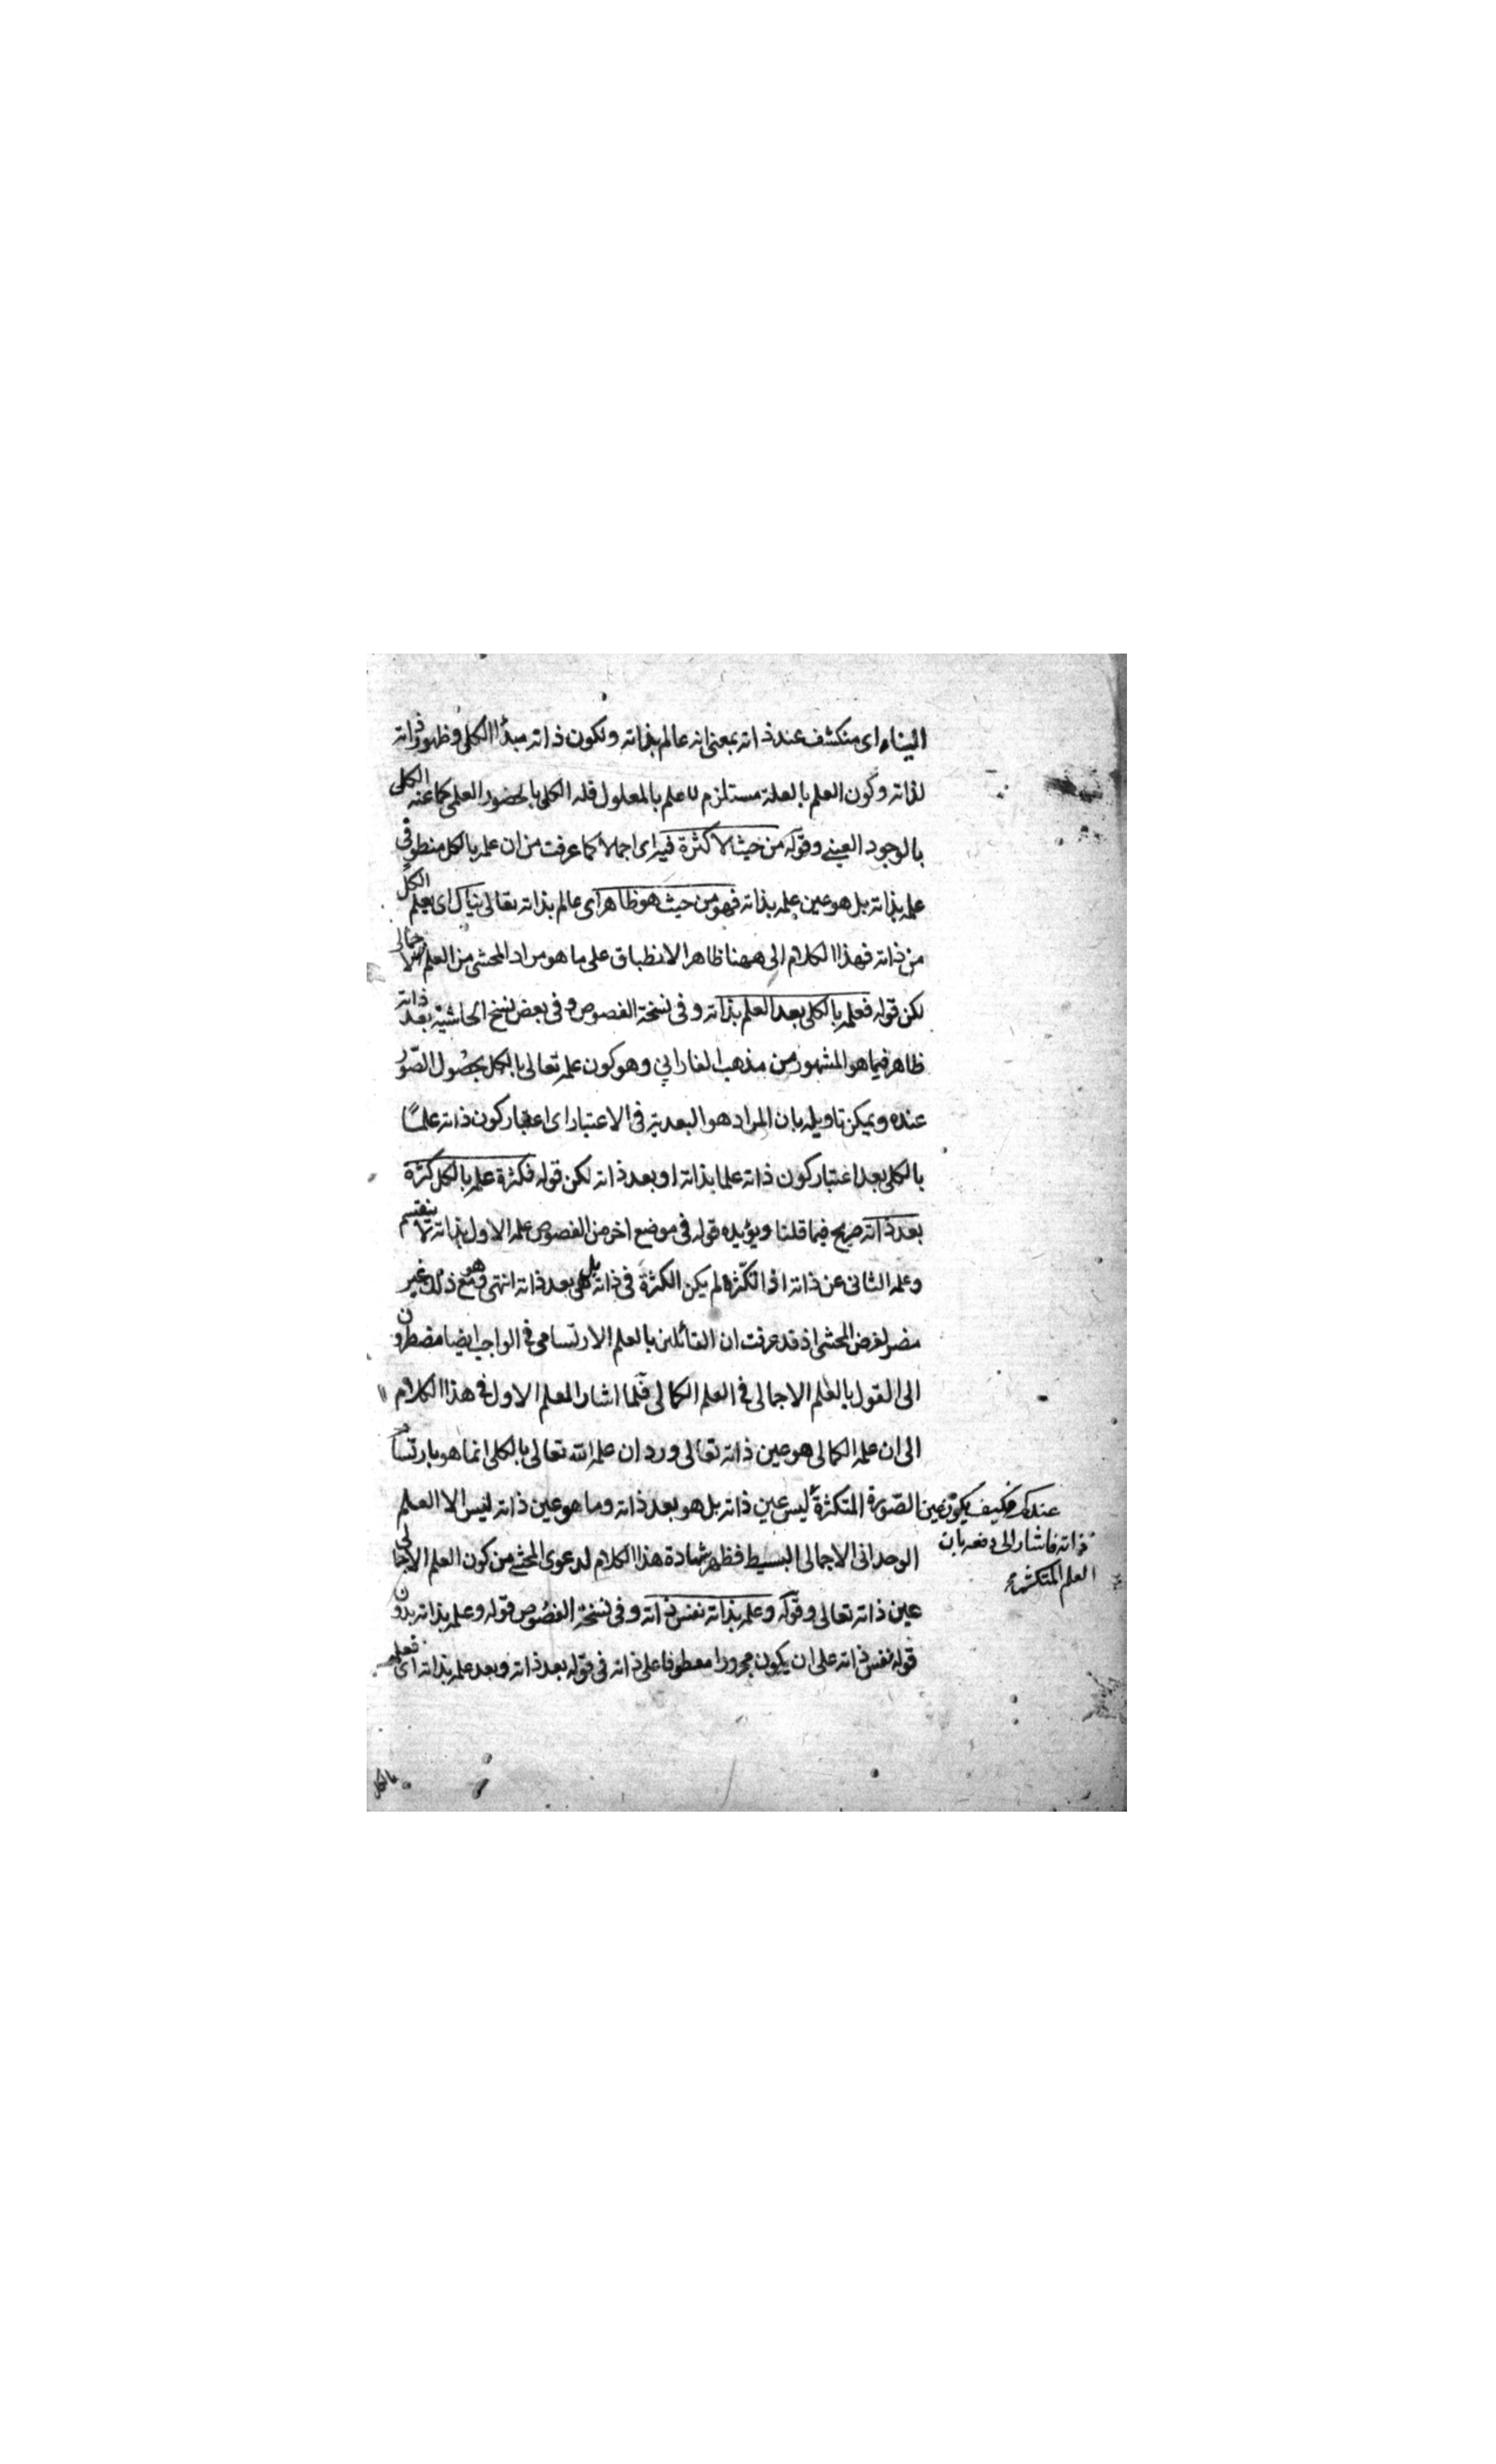 الينا اى منكشف عند ذاته بمعنى انه عالم بذاته ولكون ذاته مبدأ الكل وظهور ذاته
لذاته وكون العلم بالعلة مستلزم للعلم بالمعلول فله الكل بالحضور العلمى كما عنه الكل
بالوجود العينى وقوله من حيث لا كثرة فيه اى اجمالا كما عرفت من ان علمه بالكل منطو فى
علمه بذاته بل هو عين علمه بذاته فهو من حيث هو ظاهر اى عالم بذاته تعالى ينال اى يعلم الكل
من ذاته فهذا الكلام الى ههنا ظاهر الانطباق على ما هو مراد المحشى من العلم الاجمالى
لكن قوله فعلمه بالكل بعد العلم بذاته وفى نسخة الفصوص وفى بعض نسخ الحاشية بعد ذاته
ظاهر فيما هو المشهور من مذهب الفارابي وهو كون علمه تعالى بالكل بحصول الصور
عنده ويمكن تاويله بان المراد هو البعدية فى الاعتبار اى اعتبار كون ذاته علمًا
بالكل بعد اعتبار كون ذاته علما بذاته او بعد ذاته لكن قوله فكثرة علمه بالكل كثرة
بعد ذاته صريح فيما قلنا ويؤيده قوله فى موضع اخر من الفصوص علمه الاول بذاته لا ينقسم
وعلمه الثانى عن ذاته اذا تكثر لم يكن الكثرة فى ذاته بل بعد ذاته انتهى وهو مع ذلك غير
مضر لغرض المحشى اذ قد عرفت ان القائلين بالعلم الارتسامى فى الواجب ايضا مضطرون
الى القول بالعلم الاجمالى فى العلم الكمالى فلما اشار المعلم الاول فى هذا الكلام
الى ان علمه الكمالى هو عين ذاته تعالى ورد ان علم الله تعالى بالكل انما هو بارتسام
الصورة المتكثرة ليس عين ذاته بل هو بعد ذاته وما هو عين ذاته ليس الا العلم
الوحدانى الاجمالى البسيط فظهر شهادة هذا الكلام لدعوى المحشى من كون العلم الاجمالى
عين ذاته تعالى وقوله وعلمه بذاته نفس ذاته وفى نسخة الفصوص قوله وعلمه بذاته بدون
قوله نفس ذاته على ان يكون مجرورا معطوفا على ذاته فى قوله بعد ذاته وبعد علمه بذاته اى فعلمه
عندك فكيف يكون عين
ذاته فاشار الى دفعه بان
العلم المتكثر
بالكل